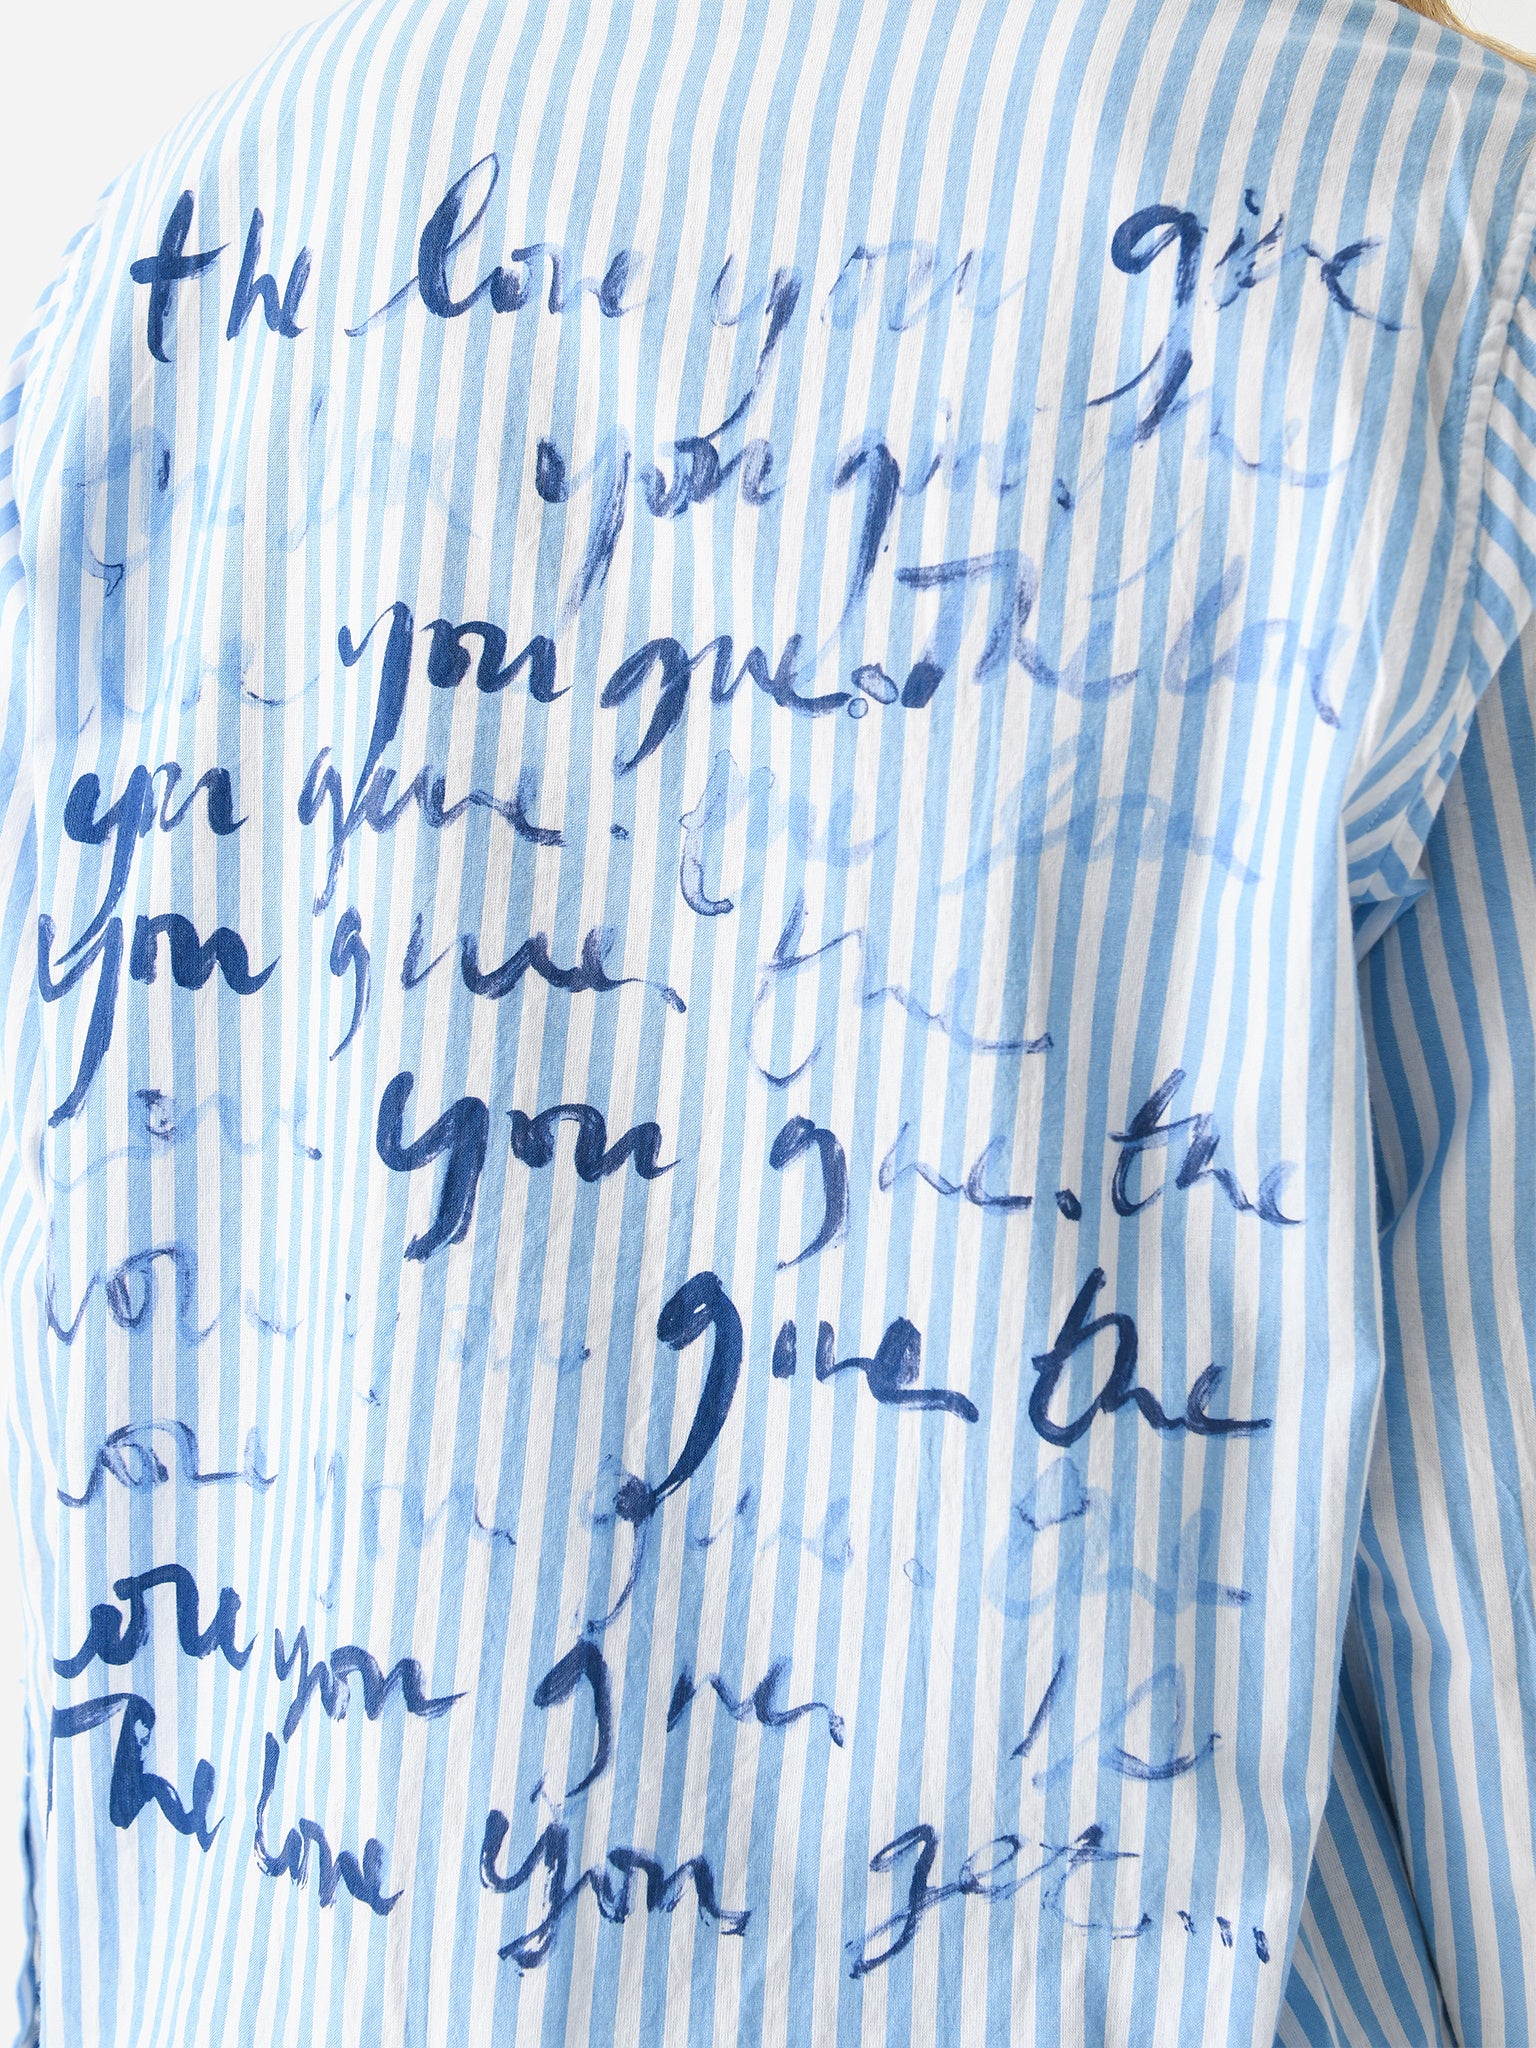 the love you give
you give. the
you give... The love
you give. the love
you give, the
love. you give. the
love give the
love you give. the
love you give is
The love you get....